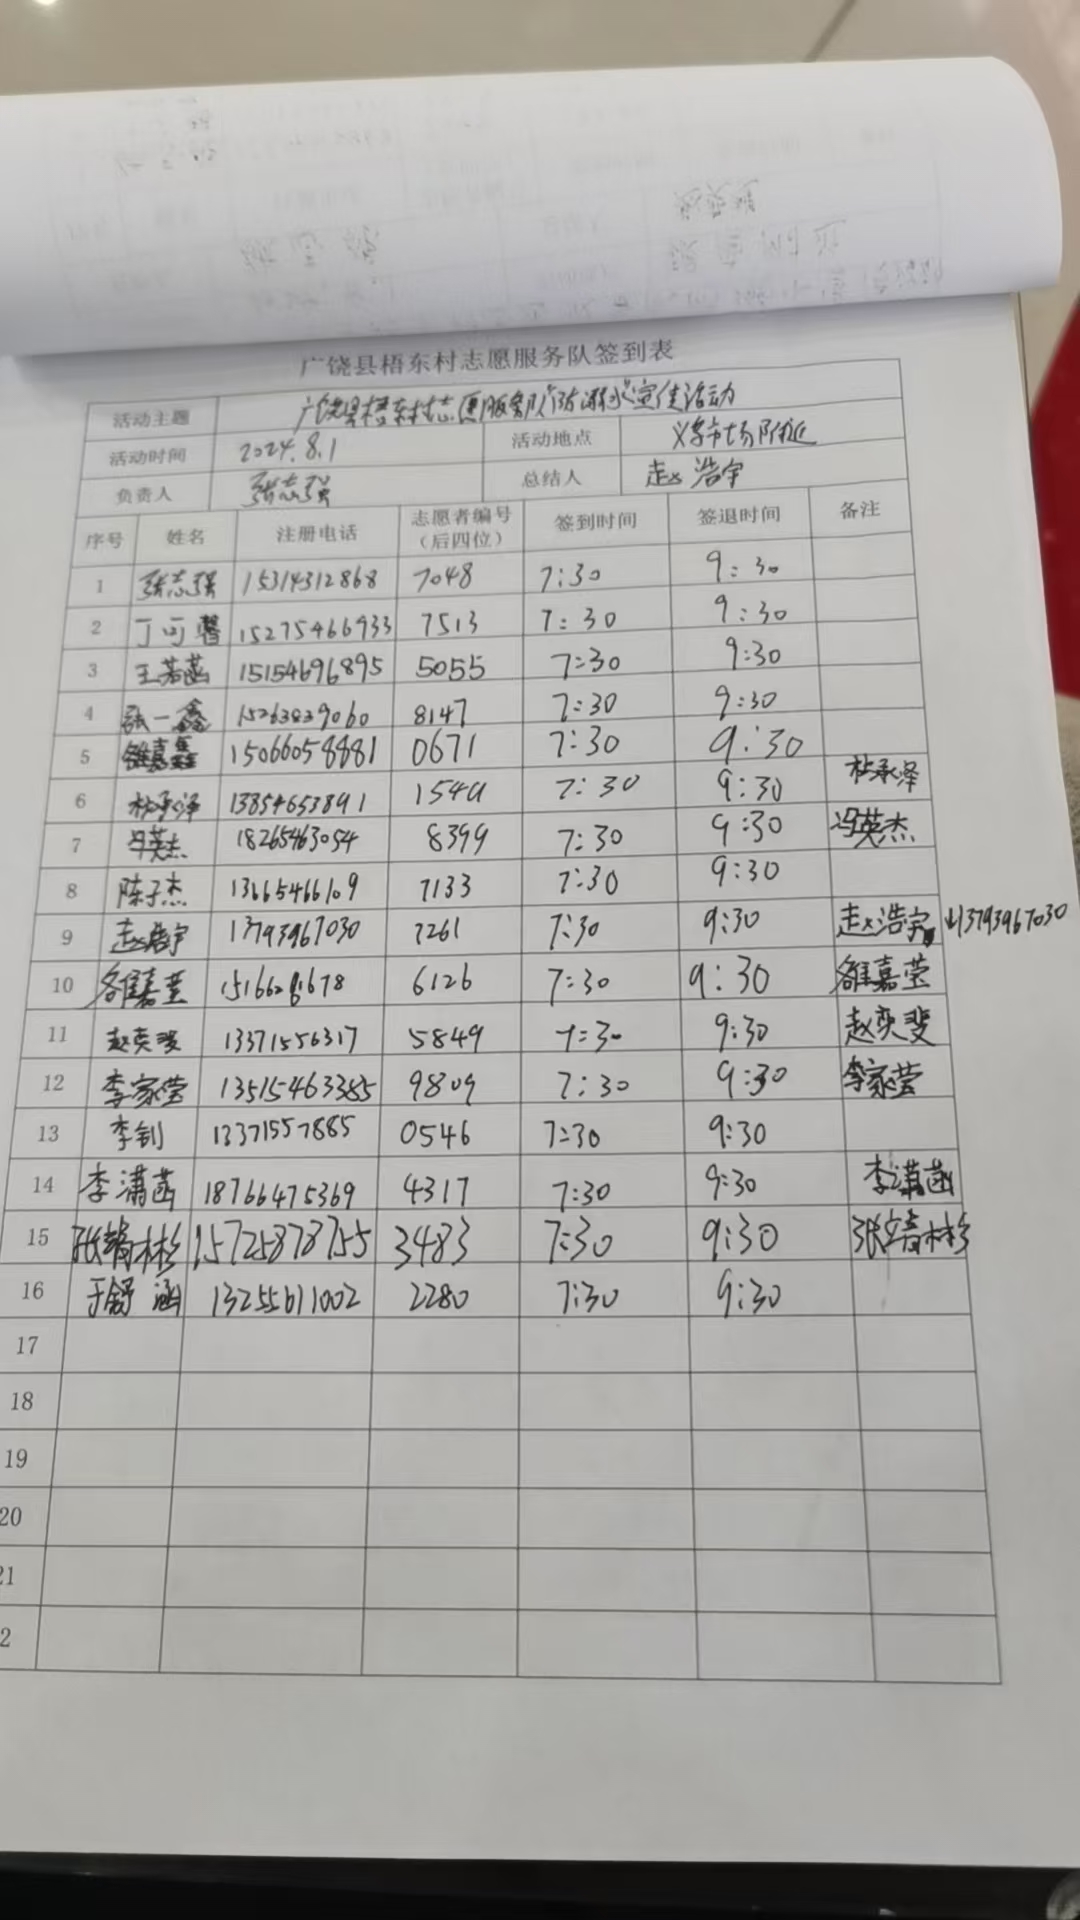 广饶县梧东村志愿服务队签到表
活动主题 广饶县梧东村志愿服务队"防溺水"宣传活动
活动时间 2024.8.1 活动地点 义乌市场附近
负责人 张志强 总结人 赵浩宇
序号 姓名 注册电话 志愿者编号（后四位） 签到时间 签退时间 备注
1 张志强 15314312868 7048 7:30 9:30
2 丁可馨 15275466933 7513 7:30 9:30
3 王若菡 15154696895 5055 7:30 9:30
4 张一鑫 15263839060 8147 7:30 9:30
5 15066058881 0671 7:30 9:30
6 杜承泽 13854653891 1544 7:30 9:30 杜承泽
7 冯英杰 18265463054 8399 7:30 9:30 冯英杰
8 陈子杰 13665466109 7133 7:30 9:30
9 赵浩宇 13793967030 7261 7:30 9:30 赵浩宇 13793967030
10 雒嘉莹 6126 7:30 9:30 雒嘉莹
11 赵奕斐 13371556317 5849 7:30 9:30 赵奕斐
12 李家莹 13515463385 9809 7:30 9:30 李家莹
13 李钊 13371557885 0546 7:30 9:30
14 李潇菡 18766475369 4317 7:30 9:30 李潇菡
15 张靖彬 15725878755 3483 7:30 9:30 张靖彬
16 于舒涵 13255611002 2280 7:30 9:30
17
18
19
20
21
2